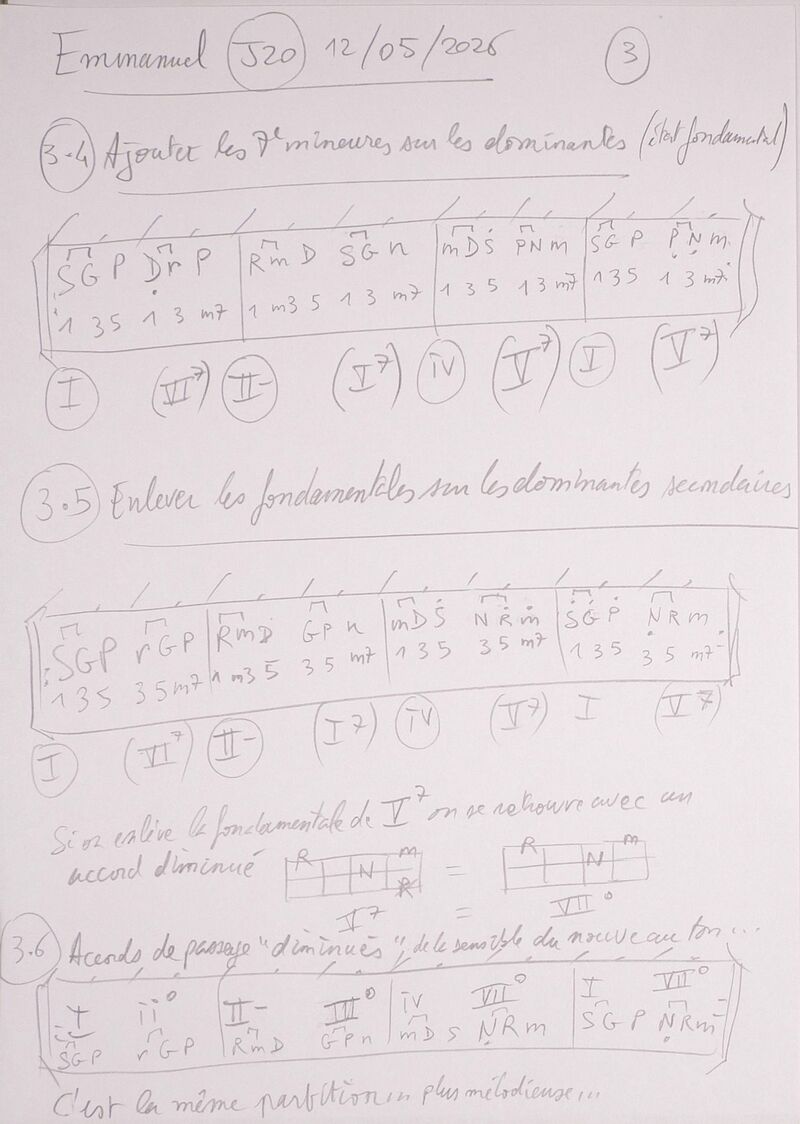 Emmanuel J20 12/05/2026 3
3.4 Ajouter les 7e mineures sur les dominantes (état fondamental)
S G P D r P R m D S G n m D S P N m S G P P N m
1 3 5 1 3 m7 1 m3 5 1 3 m7 1 3 5 1 3 m7 1 3 5 1 3 m7
I (VI7) II- (I7) IV (V7) I (V7)
3.5 Enlever les fondamentales sur les dominantes secondaires
S G P r G P R m D G P n m D S N R m S G P N R m
1 3 5 3 5 m7 1 m3 5 3 5 m7 1 3 5 3 5 m7 1 3 5 3 5 m7
I (VI7) II- (I7) IV (V7) I (V7)
Si on enlève la fondamentale de V7 on se retrouve avec un
accord diminué R N m = R N m
V7 = VII°
3.6 Accords de passage "diminués", de la sensible du nouveau ton...
I ii° II- III° IV VII° I VII°
S G P r G P R m D G P n m D S N R m S G P N R m
C'est la même partition... plus mélodieuse...